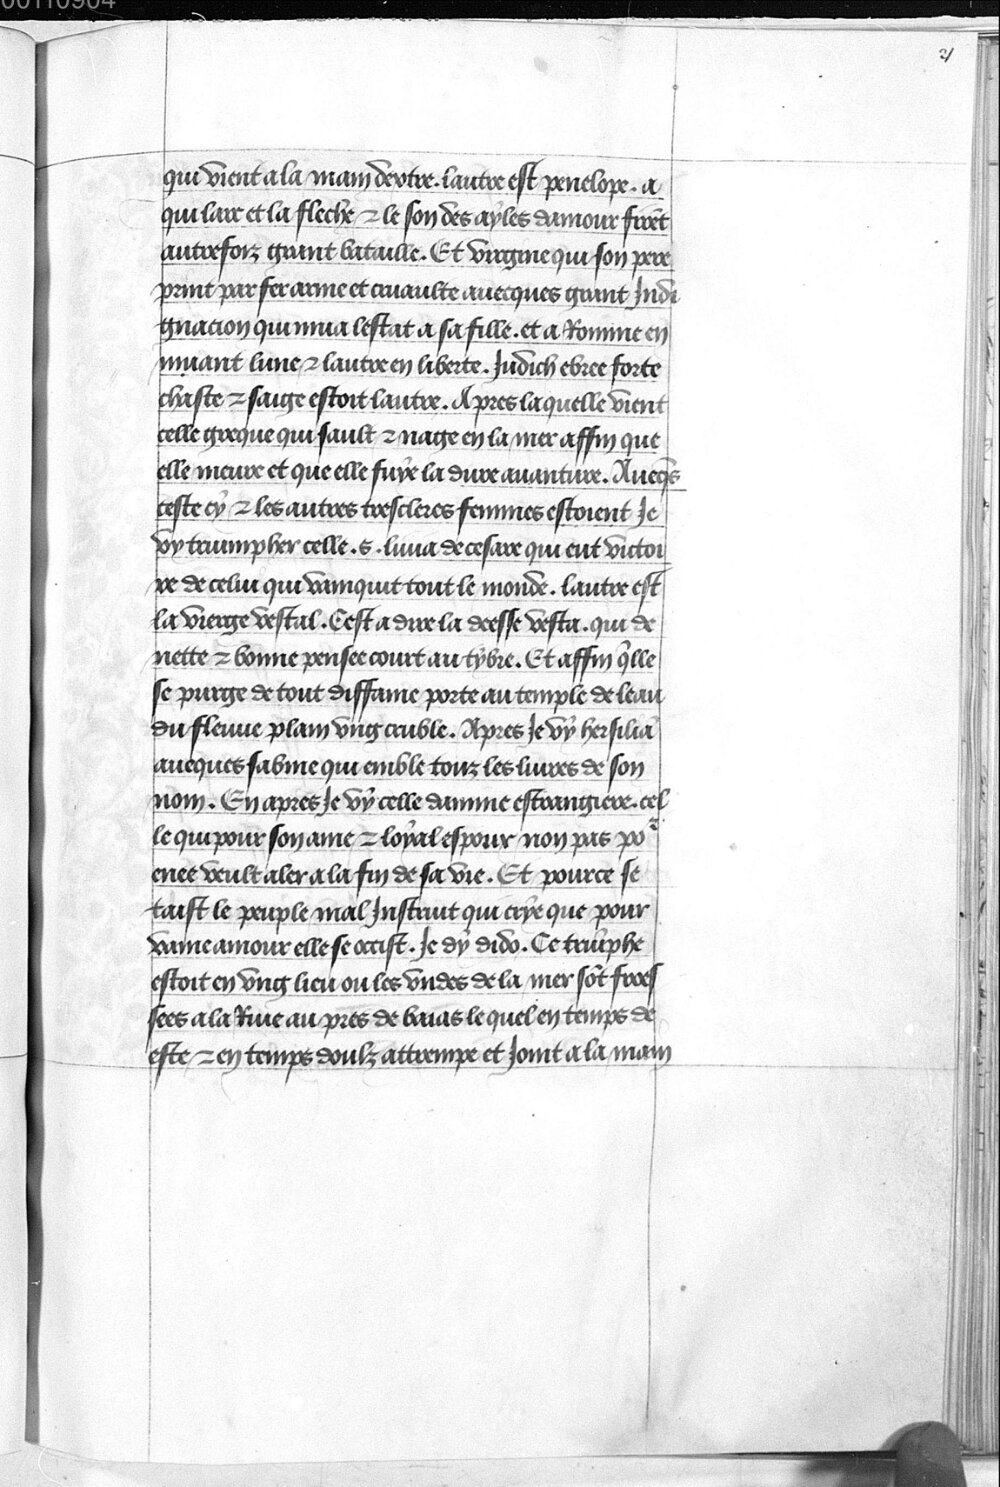 00110904
21
qui vient a la main dextre. lautre est penelope. a
qui larc et la fleche ⁊ le son des ayles damour firēt
autrefoiz grant bataille. Et virgine qui son pere
print par fer arme et cruaulte auecques grant Indi
gnacion qui mua lestat a sa fille. et a Romme en
muant lune ⁊ lautre en liberte. Judich ebree forte
chaste ⁊ saige estoit lautre. Apres laquelle vient
celle greque qui sault ⁊ nage en la mer affin que
elle meure et que elle fuye la dure auanture. Aueqs̄
ceste cy ⁊ les autres trescleres femmes estoient Je
vy triumpher celle .s. liuia de cesare qui eut victoi
re de celui qui vainquit tout le monde. lautre est
la vierge vestal. Cest a dire la deesse vesta. qui de
nette ⁊ bonne pensee court au tybre. Et affin q̄lle
se purge de tout diffame porte au temple de leau
du fleuue plain vng cruble. Apres Je vy hersilia
aueques sabine qui emble touz les liures de son
nom. En apres Je vy celle damme estrangiere. cel
le qui pour son ame ⁊ loyal espoux non pas po²
enee veult aler a la fin de sa vie. Et pource se
taist le peuple mal Instruit qui crye que pour
vaine amour elle se occist. Je dy dido. Ce triūphe
estoit en vng lieu ou les vndes de la mer sōt frois
sees a la Riue au pres de baias le quel en temps de
este ⁊ en temps doulz attrempe et Joint a la main